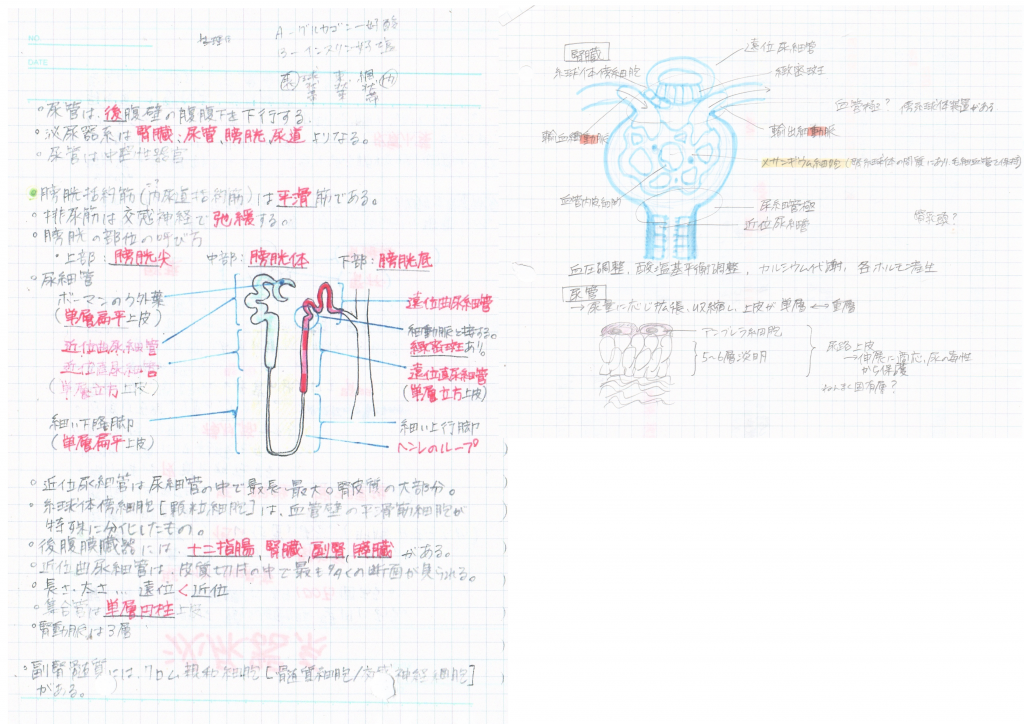 NO.
DATE
A-グルカゴン-好酸
B-インスリン-好塩
・尿管は、後腹壁の腹膜下を下行する。
・泌尿器系は腎臓、尿管、膀胱、尿道よりなる。
・尿管は中空性器官
・膀胱括約筋(内尿道括約筋)は平滑筋である。
・排尿筋は交感神経で弛緩する。
・膀胱の部位の呼び方
・上部:膀胱尖 中部:膀胱体 下部:膀胱底
・尿細管
ボーマンのう外葉
(単層扁平上皮)
近位曲尿細管
近位直尿細管
(単層立方上皮)
細い下降脚
(単層扁平上皮)
遠位曲尿細管
細動脈と接する。
緻密斑あり。
遠位直尿細管
(単層立方上皮)
細い上行脚
ヘンレのループ
・近位尿細管は尿細管の中で最長・最大。腎皮質の大部分。
・糸球体傍細胞[顆粒細胞]は、血管壁の平滑筋細胞が
特殊に分化したもの。
・後腹膜臓器には、十二指腸、腎臓、副腎、膵臓がある。
・近位曲尿細管は、皮質切片の中で最も多くの断面が見られる。
・長さ・太さ…遠位<近位
・集合管は単層円柱上皮
・腎動脈は3層
泌尿器系
・副腎髄質には、クロム親和細胞[髄質細胞/交感神経細胞]
がある。
腎臓
糸球体傍細胞
遠位尿細管
緻密斑
血管極? 傍糸球体装置がある
輸出細動脈
メサンギウム細胞
尿細管極
近位尿細管
血圧調整、酸塩基平衡調整、カルシウム代謝、各ホルモン産生
尿管
→尿量に応じ拡張、収縮し、上皮が単層↔重層
アンブレラ細胞
5~6層、淡明
尿路上皮
→伸展に適応、尿の毒性
から保護